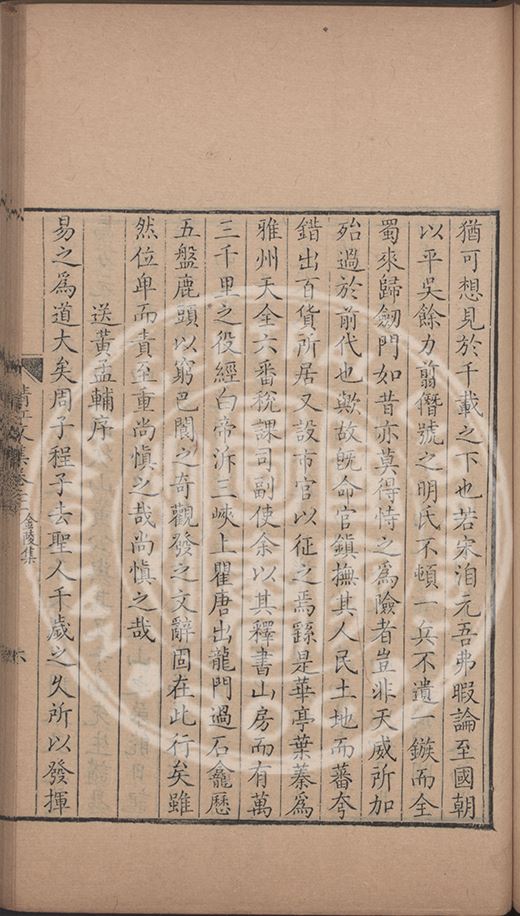 猶可想見於千載之下也若宋洎元吾弗暇論至國朝
以平吳餘力翦僭號之明氏不頓一兵不遺一鏃而全
蜀來歸劒門如昔亦莫得恃之爲險者豈非天威所加
殆過於前代也歟故旣命官鎮撫其人民土地而蕃夸
錯出百貨所居又設市官以征之焉繇是華亭葉蓁爲
雅州天全六番稅課司副使余以其釋書山房而有萬
三千里之役經白帝泝三峽上瞿唐出龍門過石龕歷
五盤鹿頭以窮巴閬之奇觀發之文辭固在此行矣雖
然位卑而責至重尚愼之哉尚愼之哉
送黃孟輔序
易之爲道大矣周子程子去聖人千歲之久所以發揮
集卷二 金陵集
六